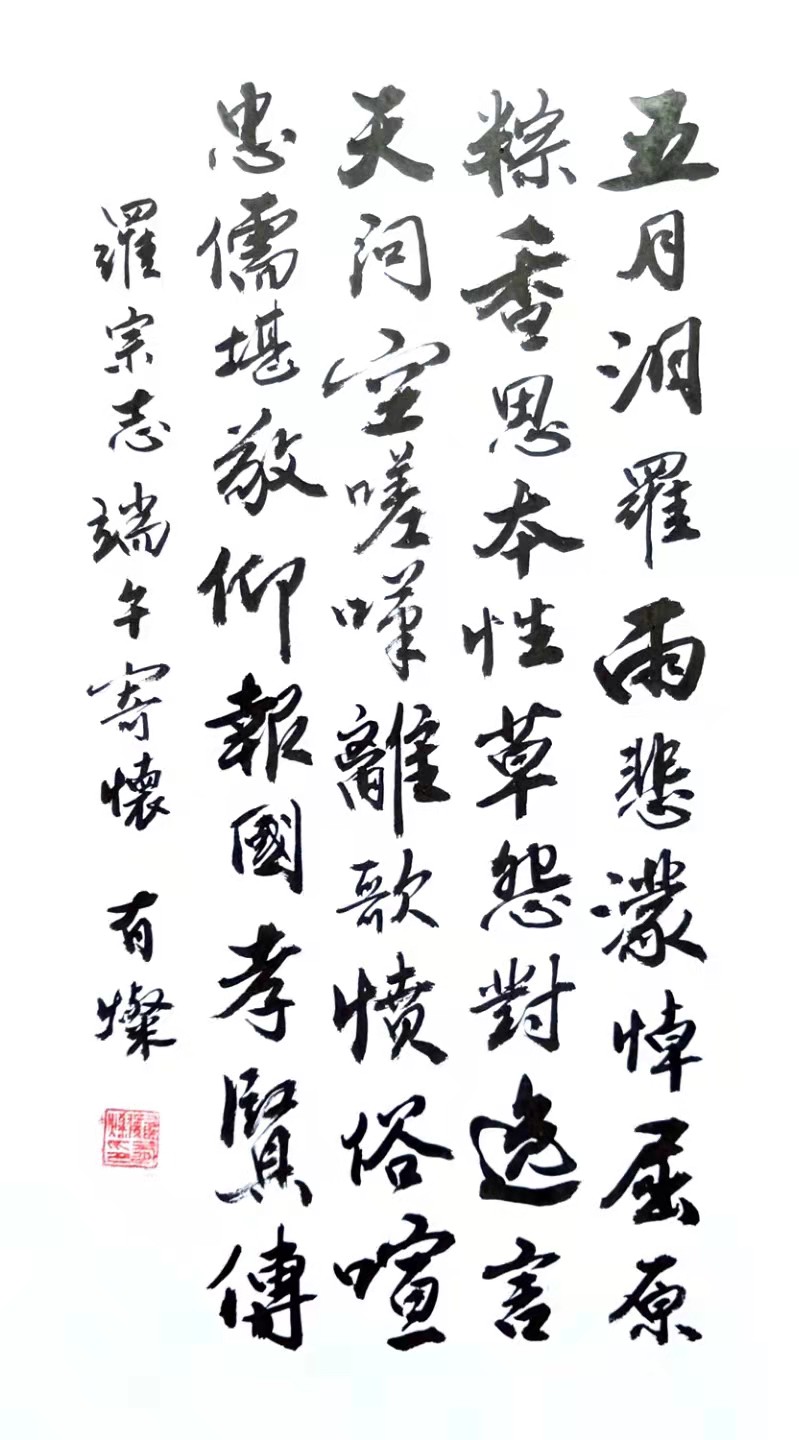 五月汨羅雨悲濛悼屈原
粽香思本性草怨對逸言
天问空嗟嘆離歌憤俗喧
忠儒堪敬仰報國孝賢傳
羅宗志端午寄懷 有燦